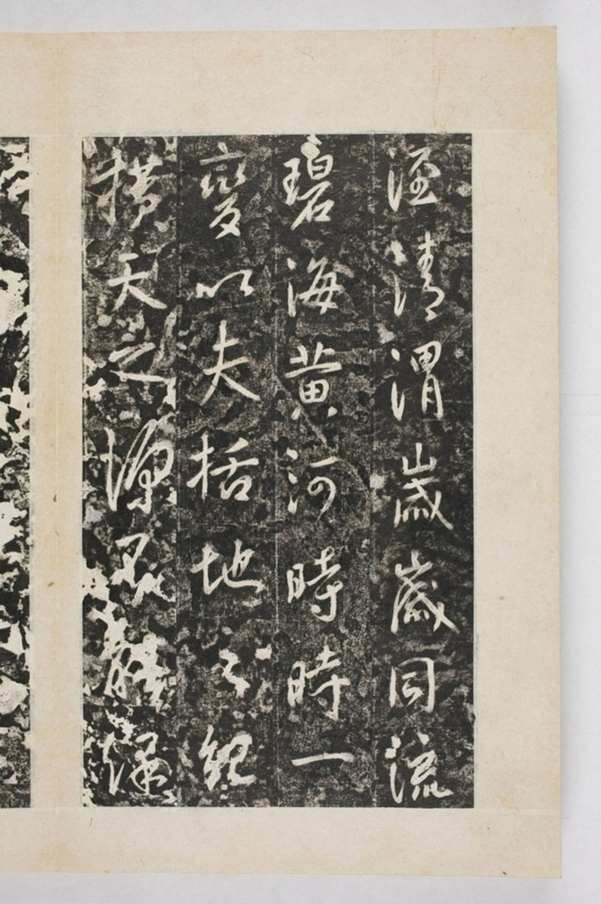 涇清渭歲歲同流
碧海黃河時時一
變以夫括地之紀
橫天之源能